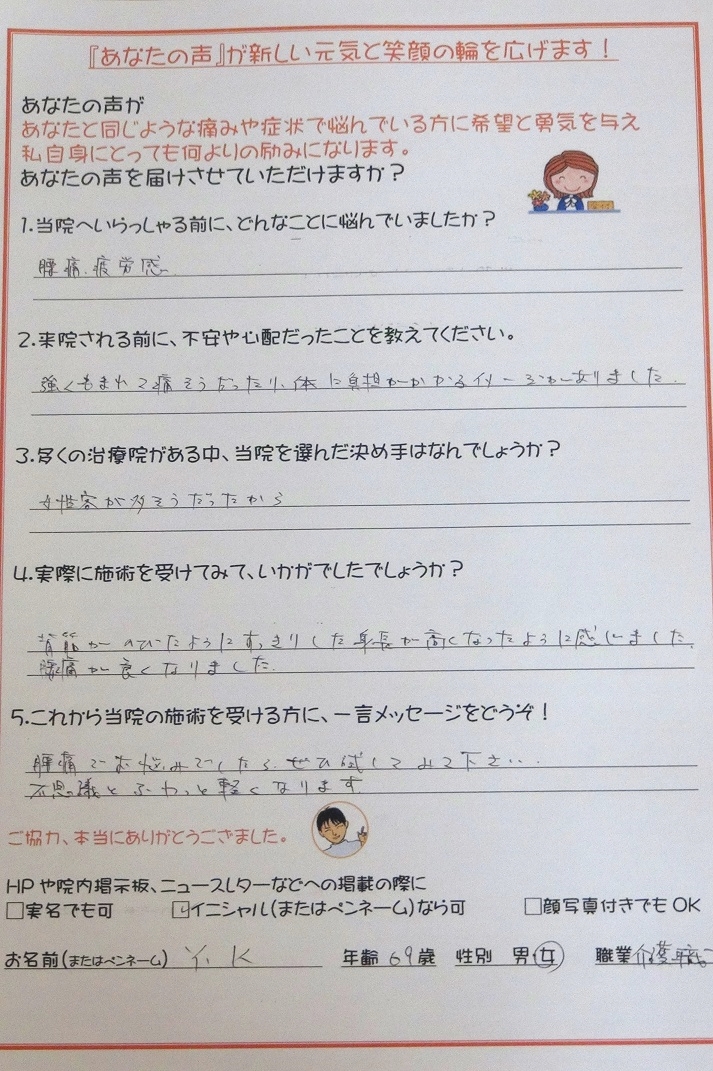 『あなたの声』が新しい元気と笑顔の輪を広げます！
あなたの声が
あなたと同じような痛みや症状で悩んでいる方に希望と勇気を与え
私自身にとっても何よりの励みになります。
あなたの声を届けさせていただけますか？
受付
1.当院へいらっしゃる前に、どんなことに悩んでいましたか？
腰痛、疲労感
2.来院される前に、不安や心配だったことを教えてください。
強くもまれて痛そうだったり、体に負担がかかるイメージがありました。
3.多くの治療院がある中、当院を選んだ決め手はなんでしょうか？
女性客が多そうだったから
4.実際に施術を受けてみて、いかがでしたでしょうか？
背筋がのびたようにすっきりした身長が高くなったように感じました。
腰痛が良くなりました。
5.これから当院の施術を受ける方に、一言メッセージをどうぞ！
腰痛でお悩みでしたら、ぜひ試してみて下さい。
不思議とふわっと軽くなります
ご協力、本当にありがとうございました。
HPや院内掲示板、ニュースレターなどへの掲載の際に
□実名でも可 ☑イニシャル(またはペンネーム)なら可 □顔写真付きでもOK
お名前(またはペンネーム) Y.K 年齢 69歳 性別 男・女 職業 介護職